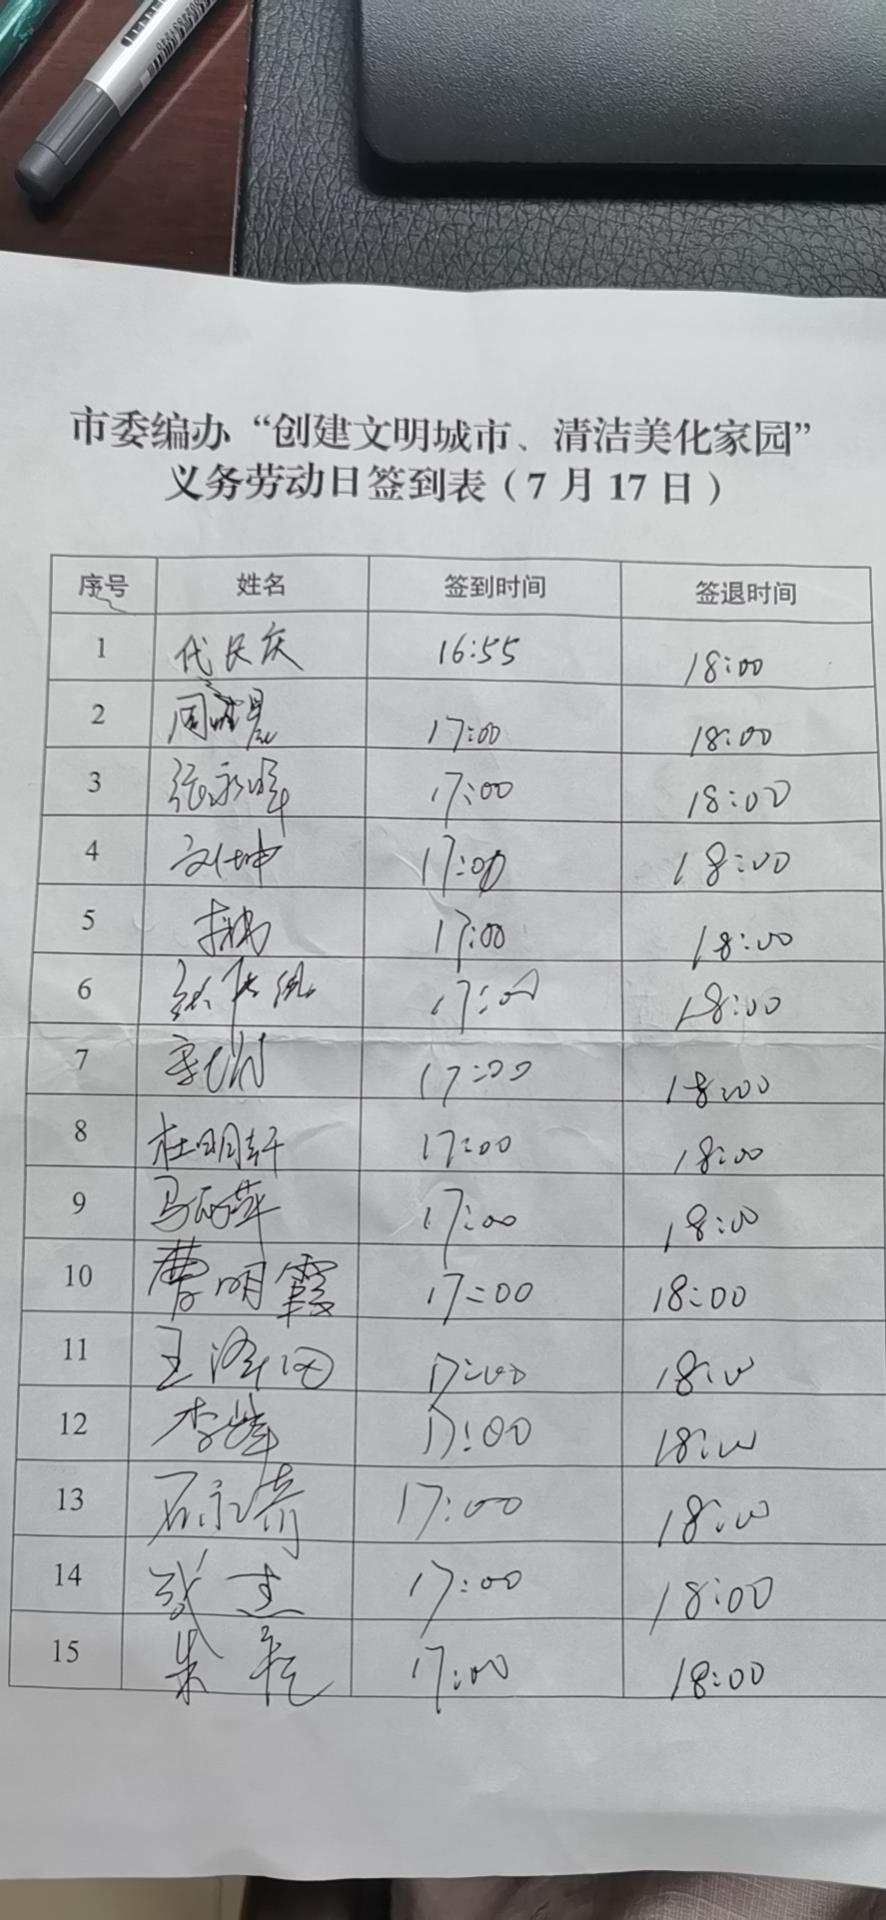 市委编办“创建文明城市、清洁美化家园”
义务劳动日签到表（7月17日）
序号 姓名 签到时间 签退时间
1 代长庆 16:55 18:00
2 周 17:00 18:00
3 张永晖 17:00 18:00
4 刘坤 17:00 18:00
5 17:00 18:00
6 张 17:00 18:00
7 李 17:00 18:00
8 杜明轩 17:00 18:00
9 马丽萍 17:00 18:00
10 曹明霞 17:00 18:00
11 王泽田 17:00 18:00
12 李峰 17:00 18:00
13 石永涛 17:00 18:00
14 张杰 17:00 18:00
15 朱乾 17:00 18:00